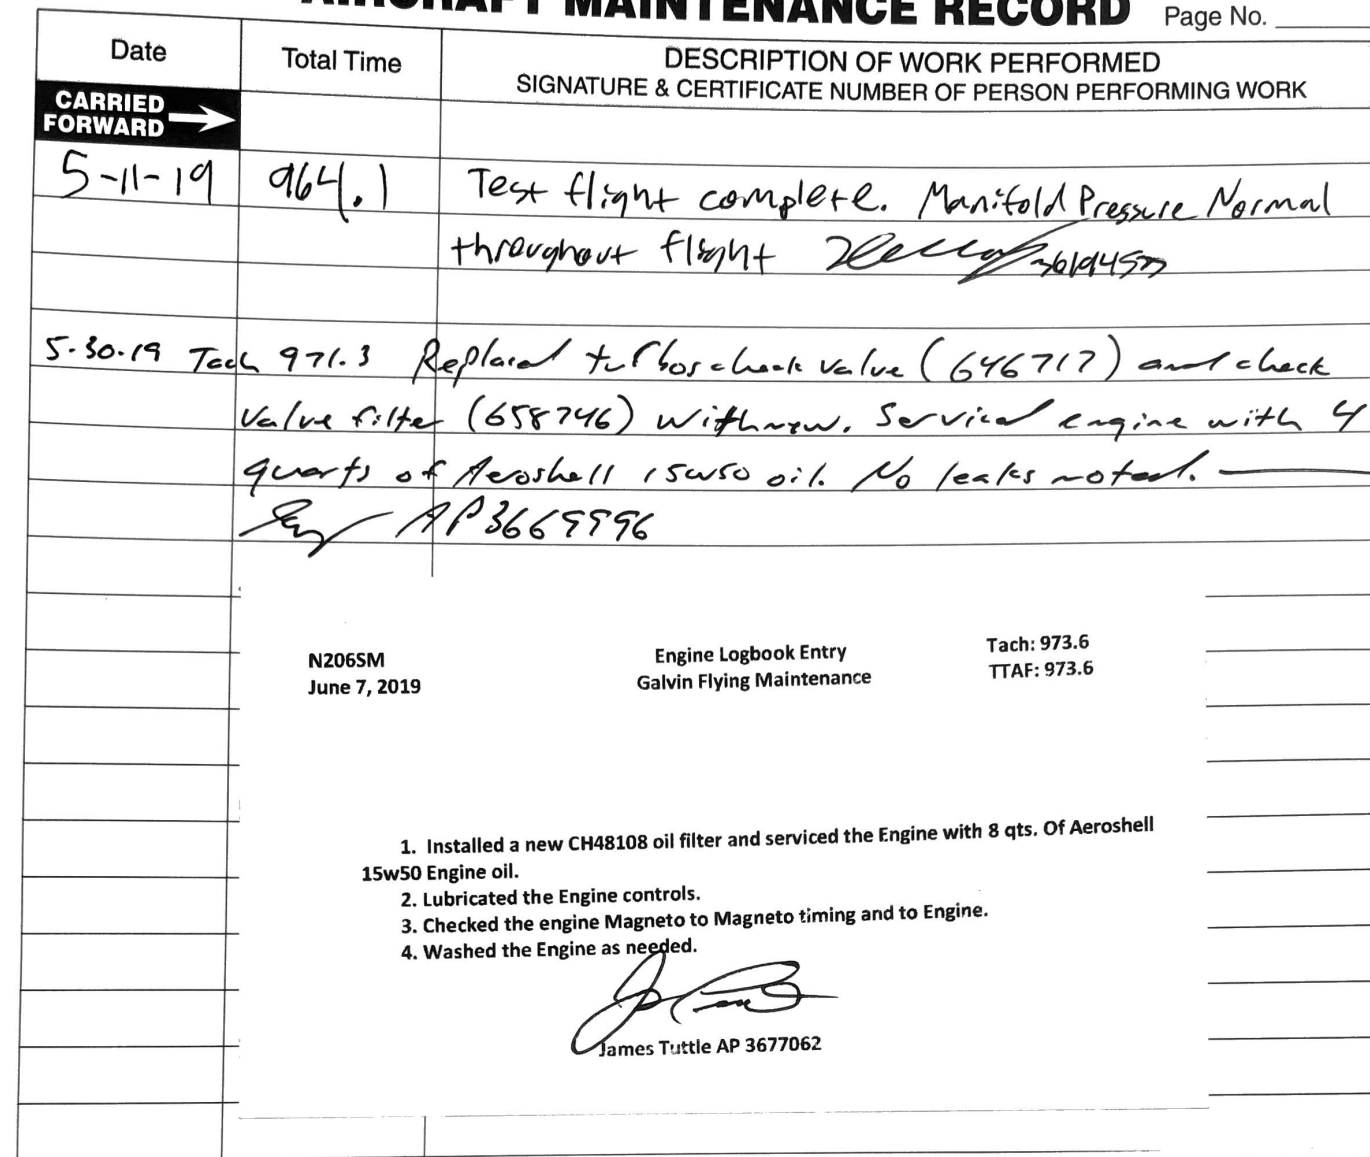 AIRCRAFT MAINTENANCE RECORD Page No.
Date Total Time DESCRIPTION OF WORK PERFORMED
SIGNATURE & CERTIFICATE NUMBER OF PERSON PERFORMING WORK
CARRIED
FORWARD
5-11-19 964.1 Test flight complete. Manifold Pressure Normal
throughout flight 3619453
5.30.19 Tach 971.3 Replaced turbos check valve (646717) and check
valve filter (658746) with new. Serviced engine with 4
quarts of Aeroshell 15w50 oil. No leaks noted.
AP 3669996
N206SM Engine Logbook Entry Tach: 973.6
June 7, 2019 Galvin Flying Maintenance TTAF: 973.6
1. Installed a new CH48108 oil filter and serviced the Engine with 8 qts. Of Aeroshell
15w50 Engine oil.
2. Lubricated the Engine controls.
3. Checked the engine Magneto to Magneto timing and to Engine.
4. Washed the Engine as needed.
James Tuttle AP 3677062